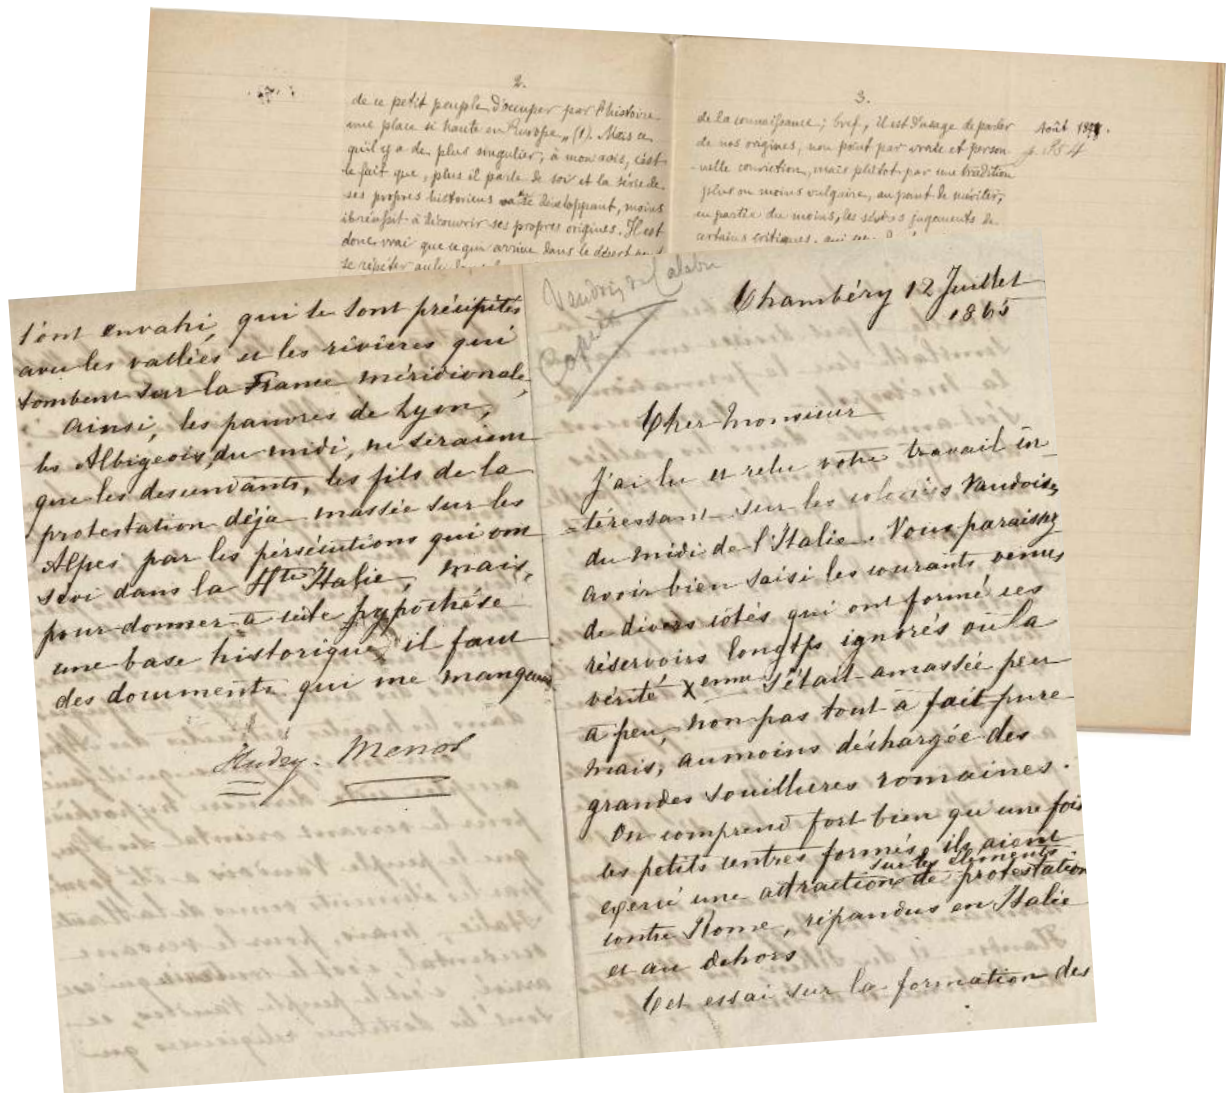 2.
de ce petit peuple d'occuper par l'histoire
une place si haute en Europe „ (1). Mais ce
qu'il y a de plus singulier, à mon avis, c'est
le fait que, plus il parle de soi et la série de
ses propres historiens va se développant, moins
il réussit à découvrir ses propres origines. Il est
donc vrai que ce qui arrive dans le désert
se répéter
3.
de la connaissance; bref, il est d'usage de parler
de nos origines, non point par vraie et person-
-nelle conviction, mais plutôt par une tradition
plus ou moins vulgaire, au point de mériter,
en partie du moins, les sévères jugements de
certains critiques, qui
Août 18
p. 854
l'ont envahi, qui se sont précipités
avec les vallées et les rivières qui
tombent sur la France méridionale,
ainsi, les pauvres de Lyon,
les Albigeois, du midi, ne seraient
que les descendants, les fils de la
protestation déjà massée sur les
Alpes par les persécutions qui ont
sévi dans la Hte Italie, mais,
pour donner à cette hypothèse
une base historique, il faut
des documents qui me manquent
Hudry-Menos
Vaudois de Calabre
Copiée
Chambéry 12 Juillet
1865
Cher Monsieur
J'ai lu et relu votre travail in-
-téressant sur les colonies Vaudoises
du midi de l'Italie. Vous paraissez
avoir bien saisi les courants venus
de divers côtés qui ont formé ces
réservoirs longtps ignorés où la
vérité Xenne s'était amassée peu
à peu, non pas tout à fait pure
mais, au moins déchargée des
grandes souillures romaines.
On comprend fort bien qu'une fois
les petits centres formés, ils aient
exercé une attraction sur les éléments de protestation
contre Rome, répandus en Italie
et au dehors
Cet essai sur la formation des